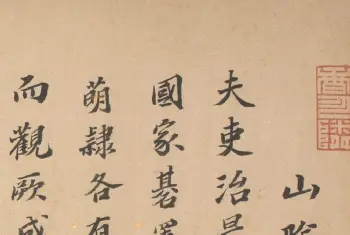 山
夫吏治是
國家碁置
萌隸各有
而觀厥成